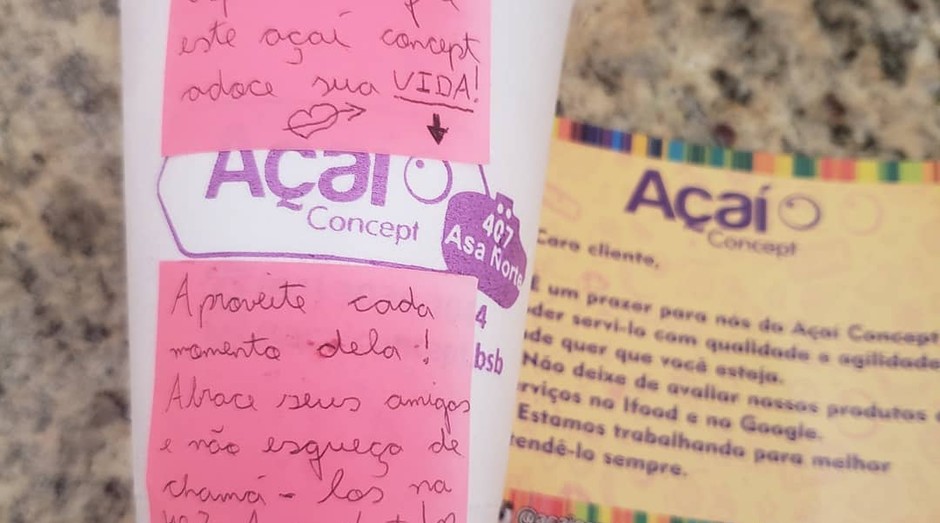 este açaí concept
adoce sua VIDA!
Açaí
Concept
407
Asa Norte
4
bsb
Aproveite cada
momento dela!
Abrace seus amigos
e não esqueça de
chamá-los na
Açaí
Concept
Caro cliente,
É um prazer para nós do Açaí Concept
servi-lo com qualidade e agilidade
quer que você esteja.
Não deixe de avaliar nossos produtos e
no Ifood e no Google.
Estamos trabalhando para melhor
sempre.